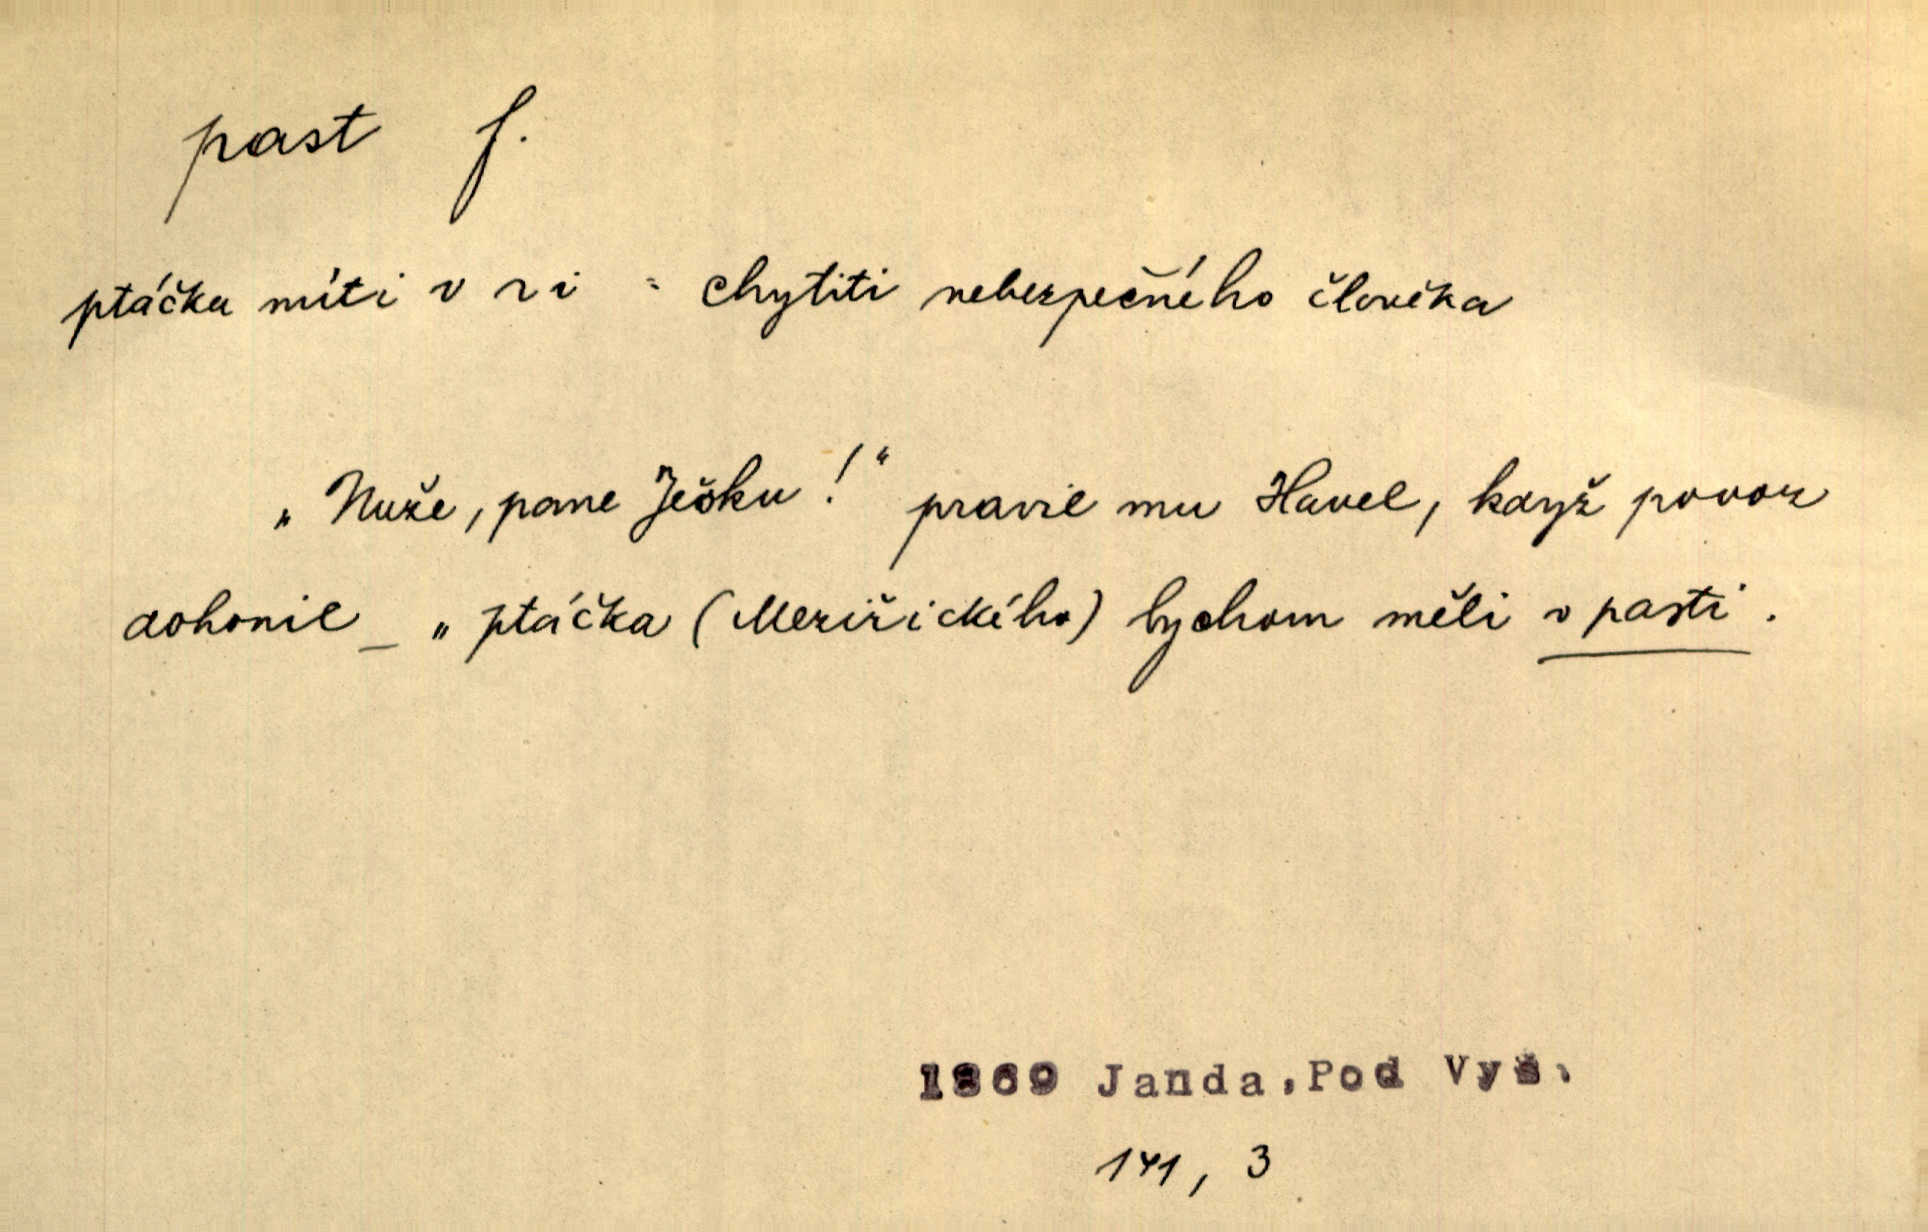 past f.
ptáčka míti v ~i = chytiti nebezpečného člověka
„Nuže, pane Ješku!“ pravil mu Havel, když povoz
dohonil – „ptáčka (Meziřického) bychom měli v pasti.
1869 Janda, Pod Vyš.
141, 3